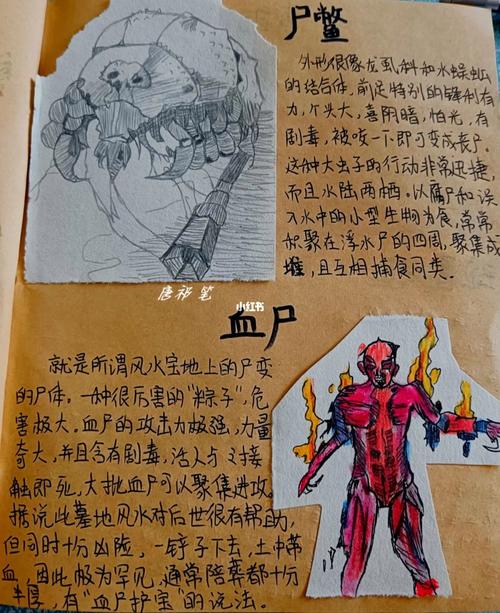 尸鳖
外形很像龙虱科和水蜈蚣
的结合体，前足特别的锋利有
力，个头大，喜阴暗，怕光，有
剧毒，被咬一下即可变成丧尸。
这种大虫子的行动非常迅捷，
而且水陆两栖。以腐尸和误
入水中的小型生物为食，常常
积聚在浮水尸的四周，聚集成
堆，且互相捕食同类。
唐祁 笔
小红书
血尸
就是所谓风水宝地上的尸变
的尸体。一种很厉害的“粽子”，危
害极大。血尸的攻击力极强，力量
奇大，并且含有剧毒，活人与之接
触即死，大批血尸可以聚集进攻。
据说此墓地风水对后世很有帮助，
但同时十分凶险，一铲子下去，土中带
血，因此极为罕见，通常陪葬都十分
丰厚，有“血尸护宝”的说法。